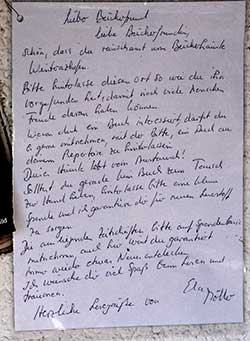 Lieber Bücherfreund
liebe Bücherfreundin,
schön, dass du reinschaust am Bücherhäusle
Bitte hinterlasse diesen Ort so wie du ihn
vorgefunden hast, damit noch viele Menschen
Freude daran haben können
Wenn dich ein Buch interessiert, darfst du
es gerne mitnehmen, mit der Bitte, ein Buch aus
deinem Repertoire zu hinterlassen
Diese Stände lebt vom Austausch!
Solltest du gerade kein Buch zum Tausch
zur Hand haben, hinterlasse bitte eine kleine
Spende und ich garantiere dir für neuen Lesestoff
zu sorgen
Die Zeitschriften bitte auf Spendenbasis
mitnehmen auch hier wirst du garantiert
immer wieder etwas Neues entdecken
Ich wünsche dir viel Spaß beim Lesen und
Herzliche Lesegrüße von